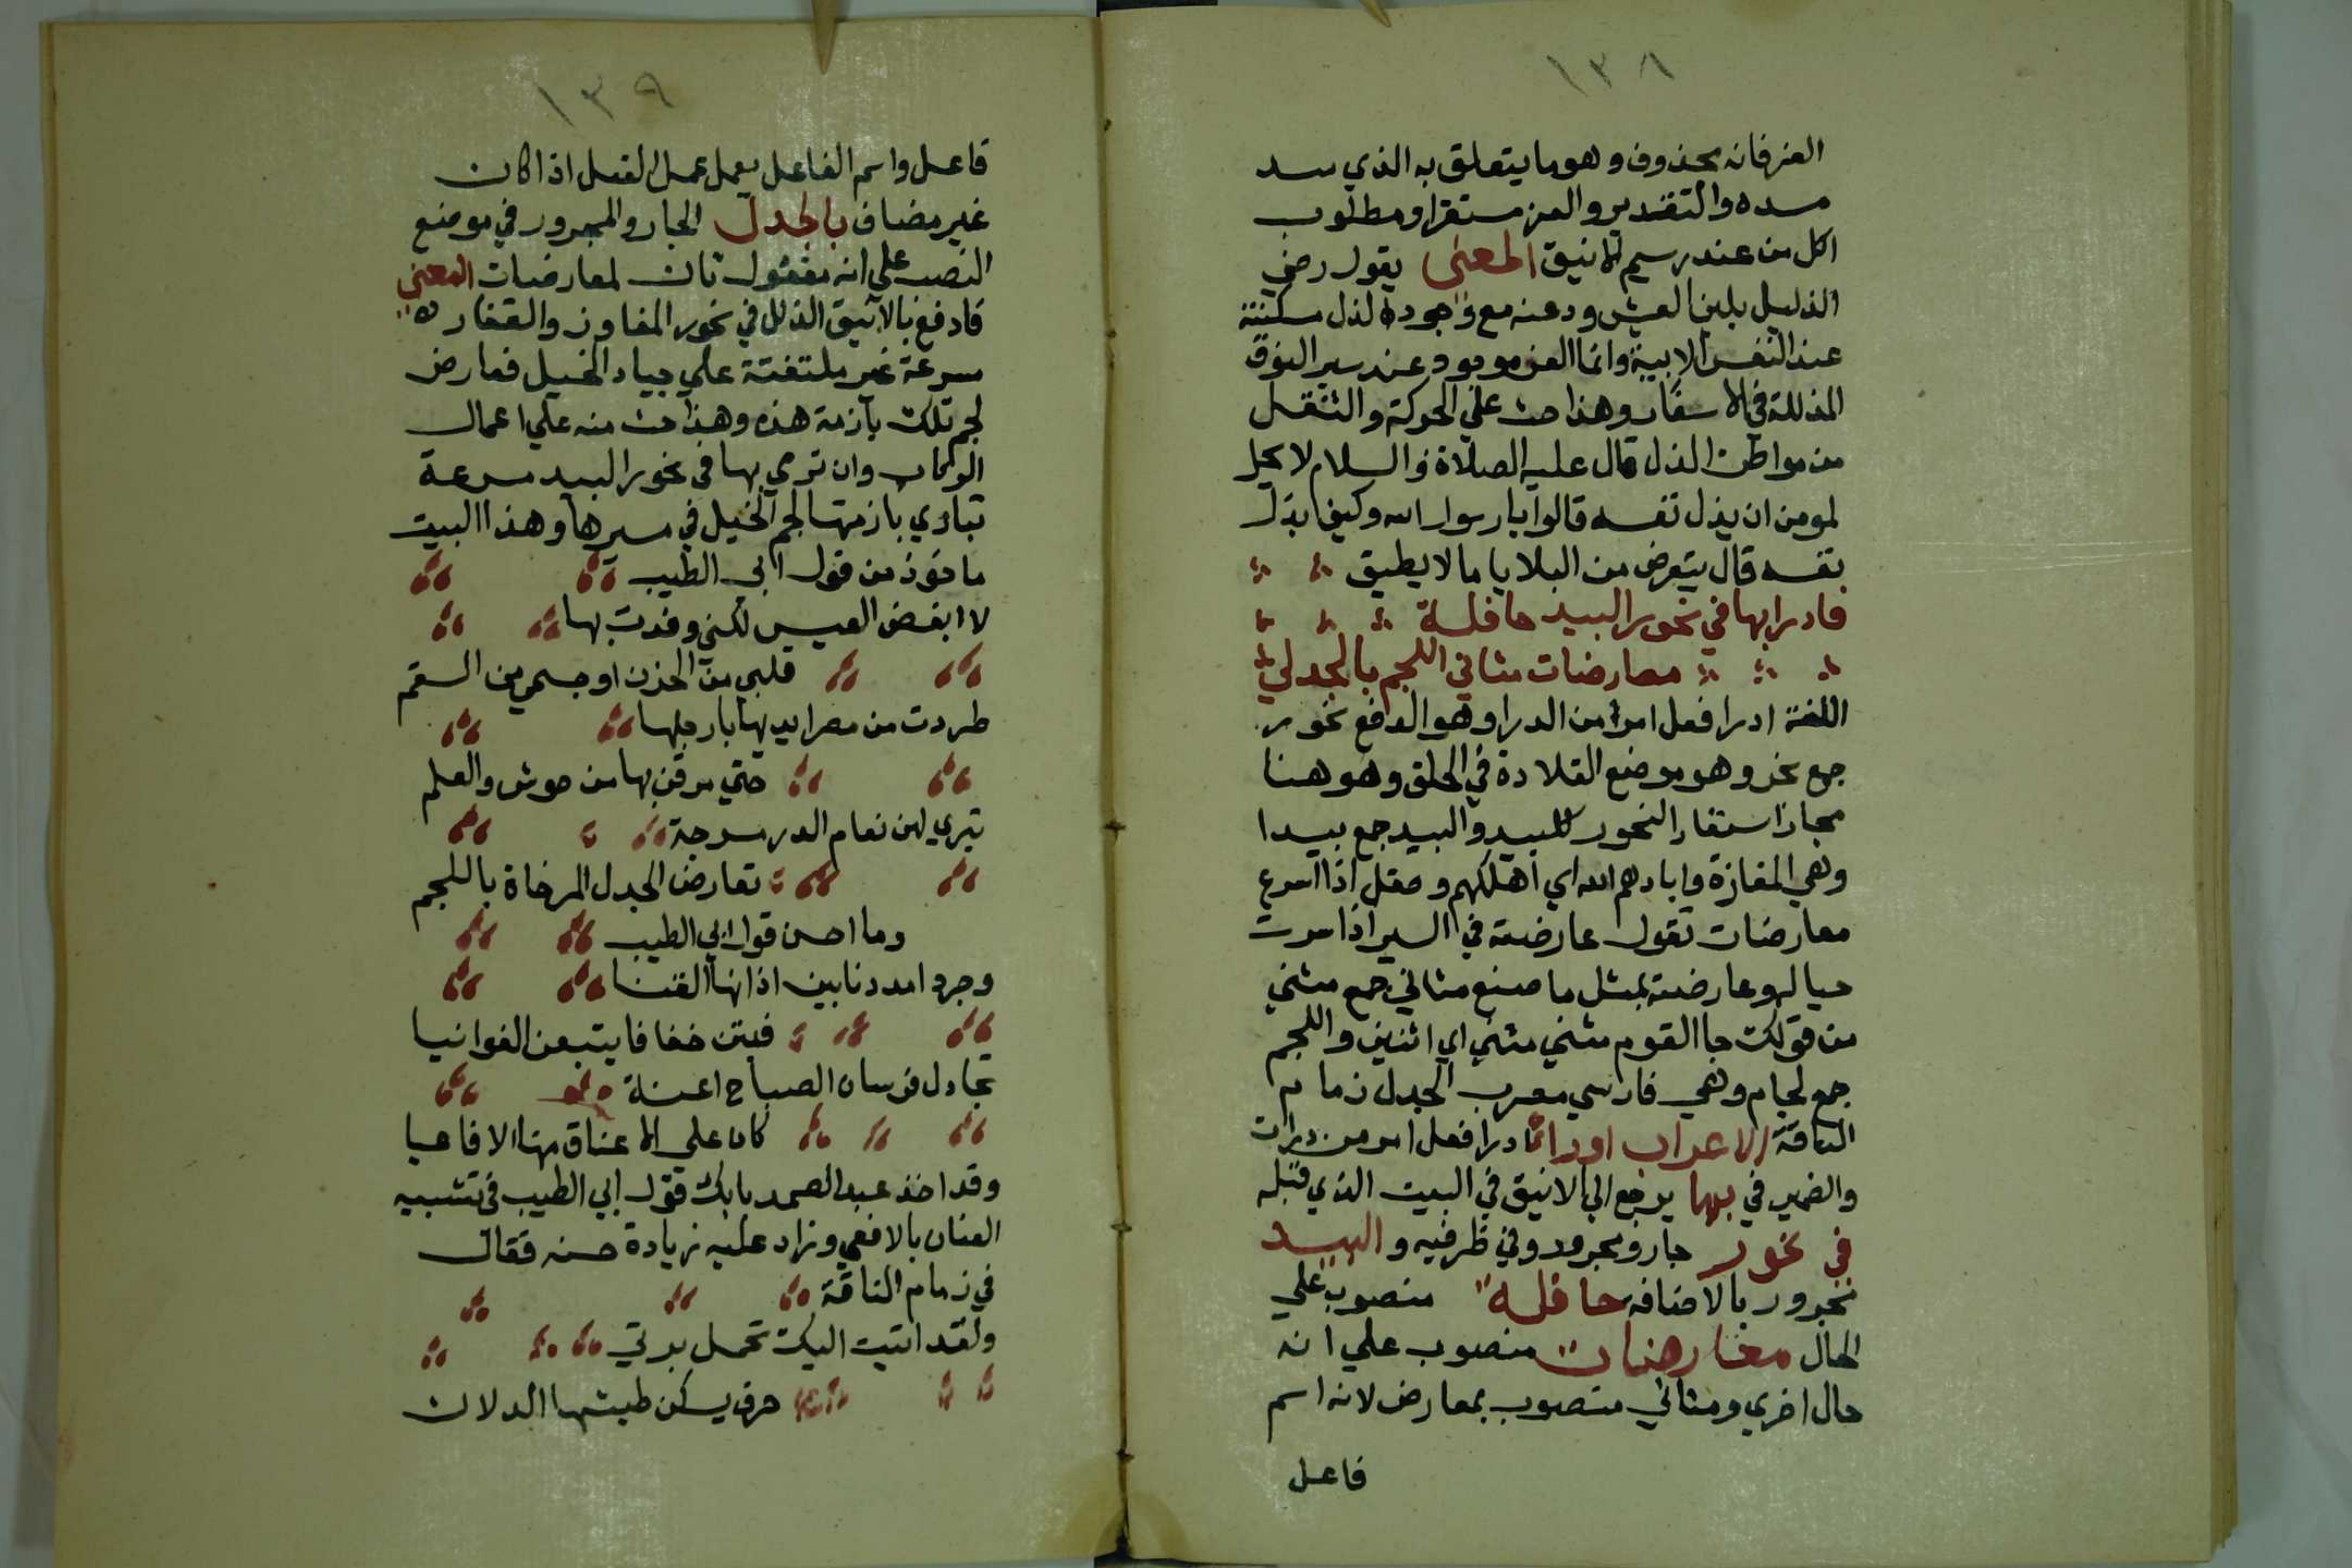 ١٣٨
العز فانه محذوف وهو ما يتعلق به الذي سد
مسده والتقدير والعز مستقرا ومطلوب
اكل من عند رسيم الانيق المعنى يقول رضي
الذليل بلين العيش ودعته مع وجود الذل مسكنة
عند النفس الابية وانما العز موجود عند سير النوق
المذللة في الاسفار وهذا حث على الحركة والتنقل
من مواطن الذل قال عليه الصلاة والسلام لا يحل
لمومن ان يذل نفسه قالوا يا رسول الله وكيف يذل
نفسه قال يتعرض من البلايا ما لا يطيق
فادرا بها في نحور البيد حافلة
معارضات مثاني اللجم بالجدل
اللغة ادرا فعل امر من الدرا وهو الدفع نحور
جمع نحر وهو موضع القلادة في الحلق وهو هنا
مجاز استعار النحور للبيد والبيد جمع بيدا
وهي المفازة وابادهم الله اي اهلكهم وحفل اذا اسرع
معارضات تقول عارضته في السير اذا سرت
حياله وعارضته بمثل ما صنع مثاني جمع مثني
من قولك جا القوم مثني مثني اي اثنين واللجم
جمع لجام وهي فارسي معرب الجدل زمام
الناقة الاعراب ادرا فعل امر من درات
والضمير في بها يرجع الي الانيق في البيت الذي قبله
في نحور جار ومجرور وفي ظرفيه والبيد
مجرور بالاضافه حافلة منصوب علي
الحال معارضات منصوب علي انه
حال اخري ومثاني منصوب بمعارض لانه اسم
فاعل
١٣٩
فاعل واسم الفاعل يعمل عمل الفعل اذا كان
غير مضاف بالجدل الجار والمجرور في موضع
النصب علي انه مفعول ثان لمعارضات المعني
فادفع بالانيق الذلل في نحور المفاوز والقفار
مسرعة غير ملتفتة علي جياد الخيل فعارض
لجم تلك بازمة هذه وهذا حث منه علي اعمال
الركاب وان ترمي بها في نحور البيد مسرعة
تباري بازمتها لجم الخيل في سيرها وهذا البيت
ماخوذ من قول ابي الطيب
لا ابغض العيس لكني وقدت بها
قلبي من الحزن او جسمي من السقم
طردت من مصر ايديها بارجلها
حتي مرقن بها من جوش والعلم
تبري لهن نعام الدر مسرجة
تعارض الجدل المرخاة باللجم
وما احسن قول ابي الطيب
وجرد امددنا بين اذانها القنا
فبتن خفافا يتبعن العواليا
تجاذل فرسان الصباح اعنة
كان علي الاعناق منها الافاعيا
وقد اخذ عبد الصمد بابك قول ابي الطيب في تشبيه
العنان بالافعي وزاد عليه زيادة حسنه فقال
في زمام الناقة
ولقد اتيت اليك تحمل بزتي
حرف يسكن طيشها الدلان